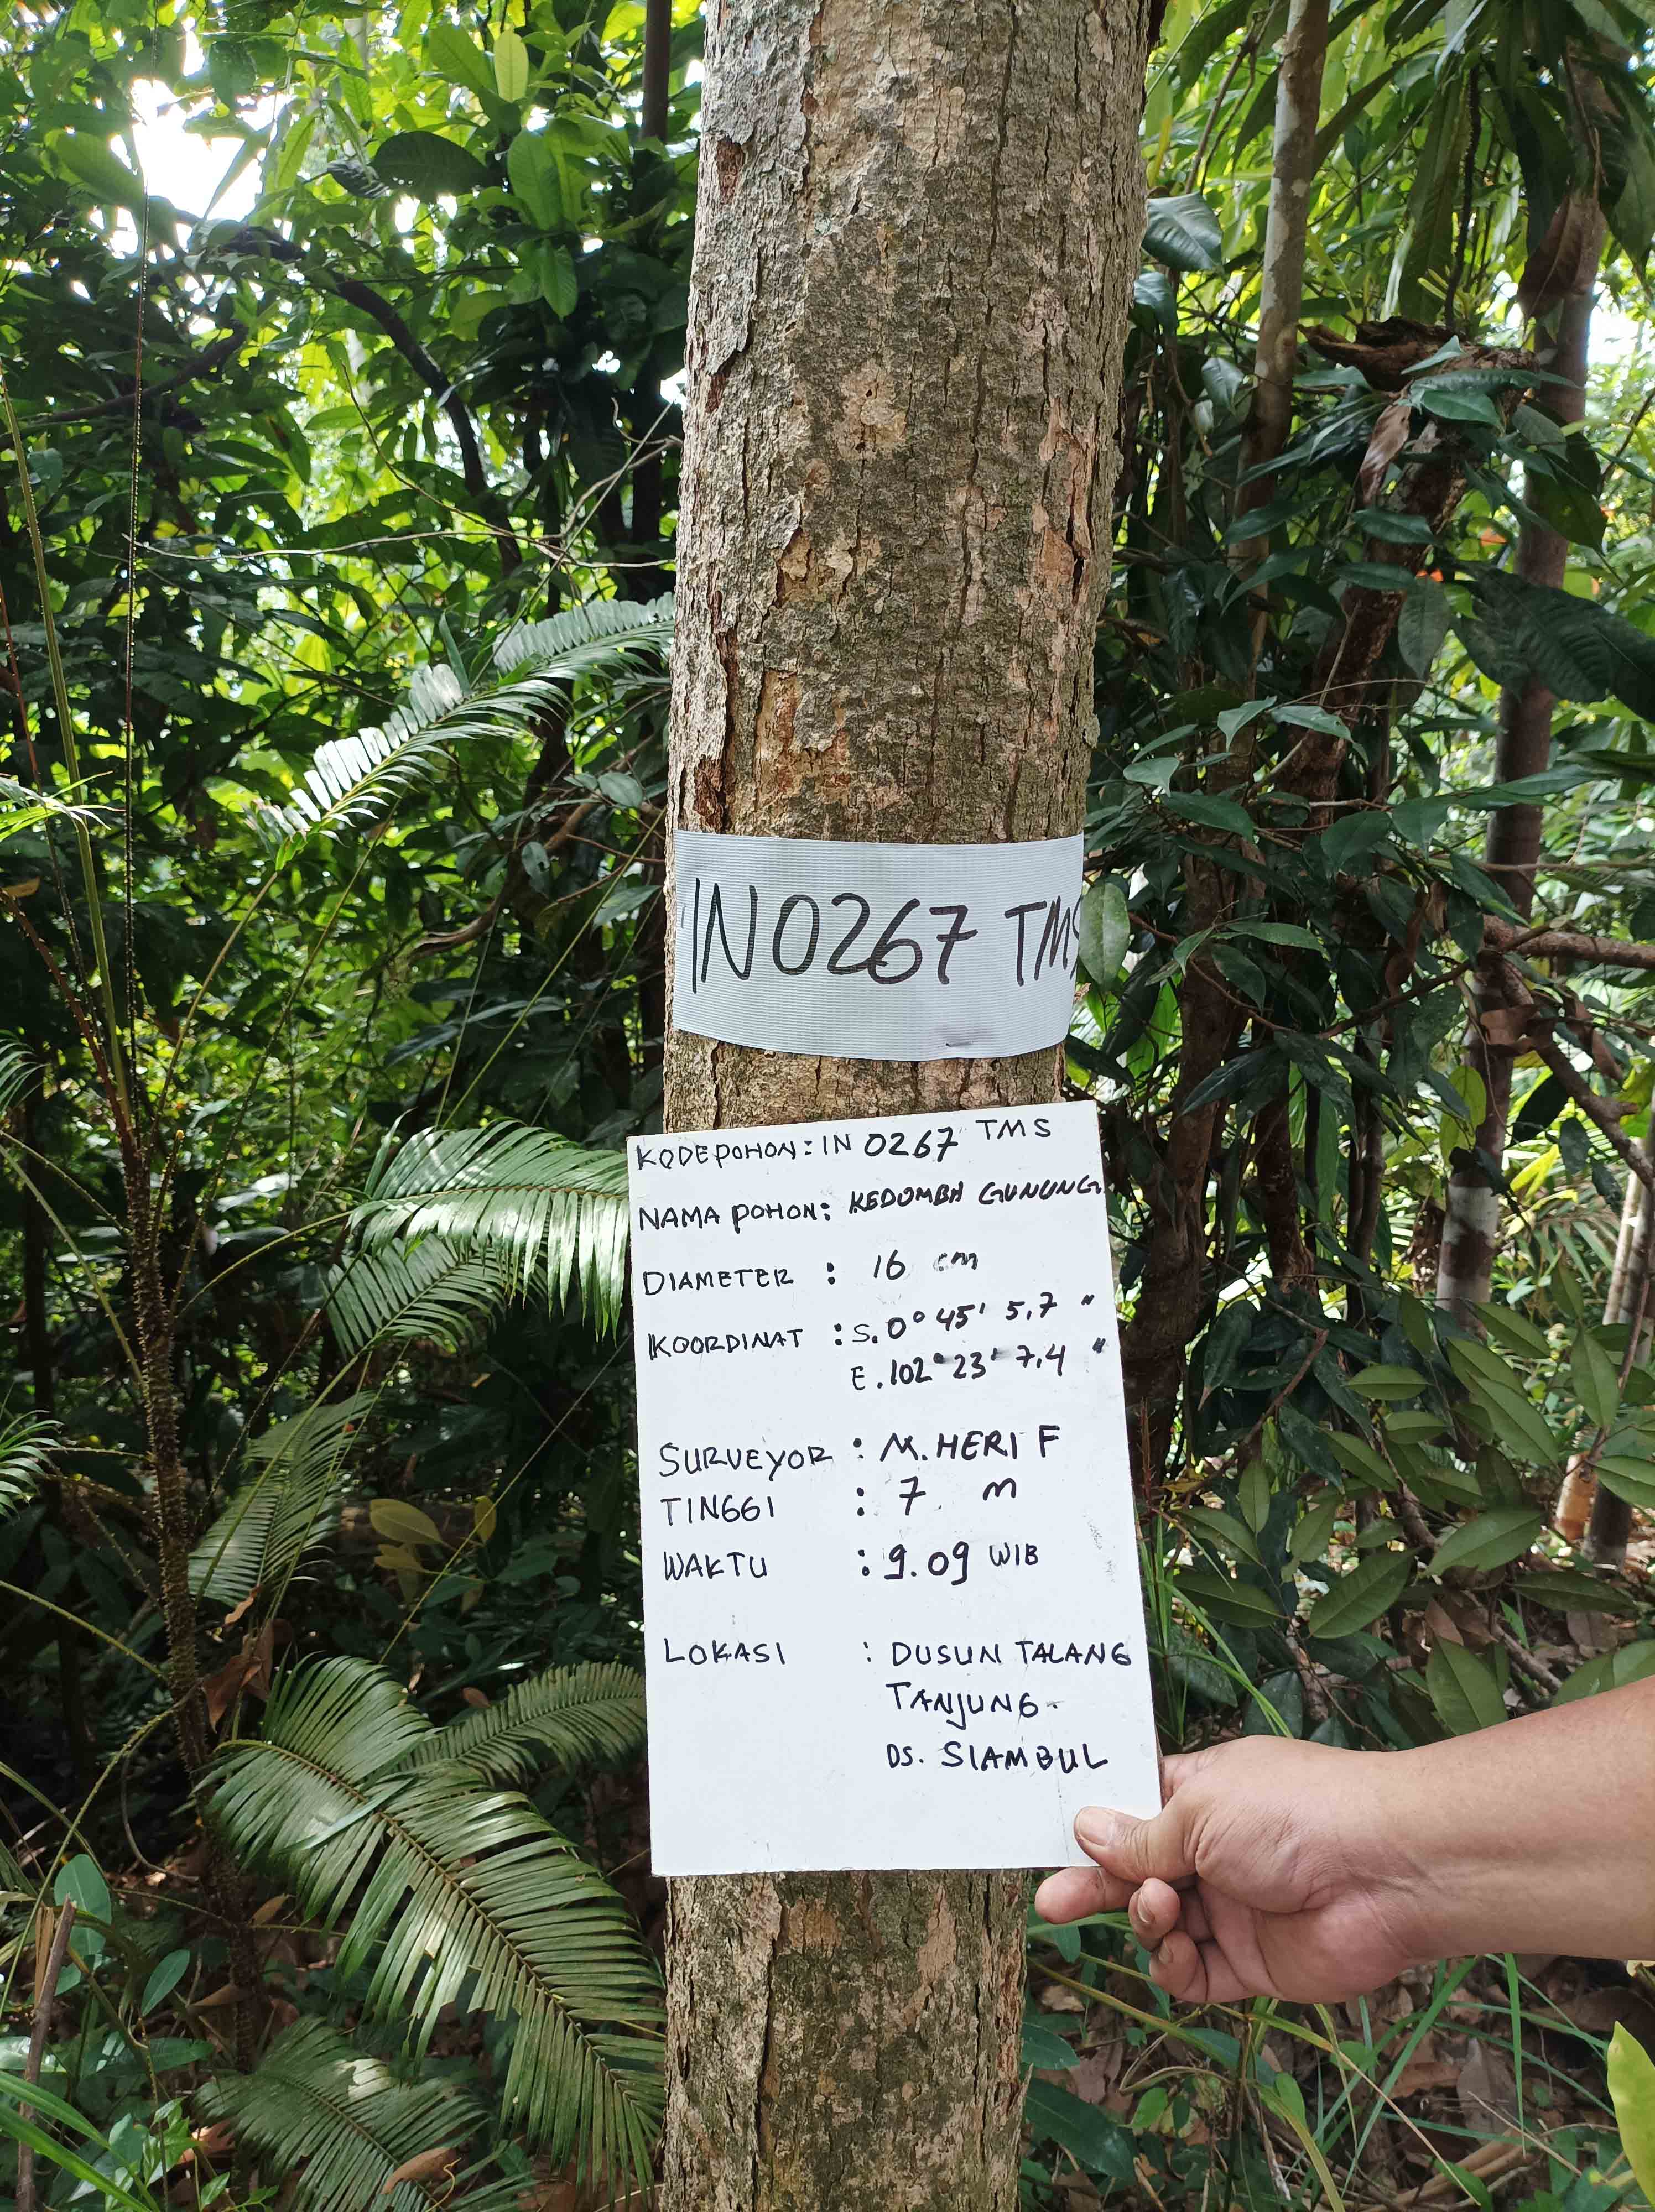 IN0267 TMS
KODE POHON : IN 0267 TMS
NAMA POHON : KEDOMBA GUNUNG
DIAMETER : 16 cm
KOORDINAT : S. 0° 45' 5,7 "
E. 102° 23' 7,4 "
SURVEYOR : M. HERI F
TINGGI : 7 m
WAKTU : 9.09 WIB
LOKASI : DUSUN TALANG
TANJUNG-
DS. SIAMBUL